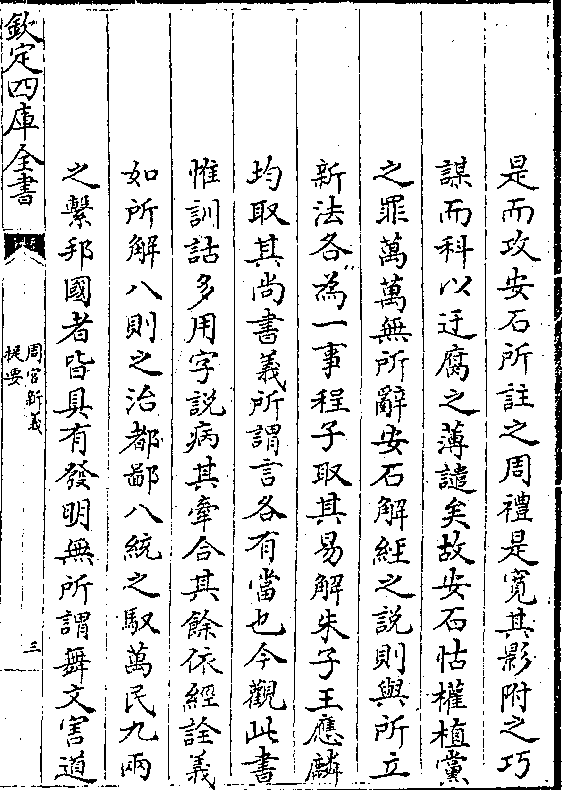 是而攻安石所註之周禮是寛其影附之巧
謀而科以迂腐之薄譴矣故安石怙權植黨
之罪萬萬無所辭安石解經之説則與所立
新法各為一事程子取其易解朱子王應麟
均取其尚書義所謂言各有當也今觀此書
惟訓詁多用字説病其牽合其餘依經詮義
如所解八則之治都鄙八統之馭萬民九兩
之繫邦國者皆具有發明無所謂舞文害道
欽定四庫全書
周官新義
提要
三